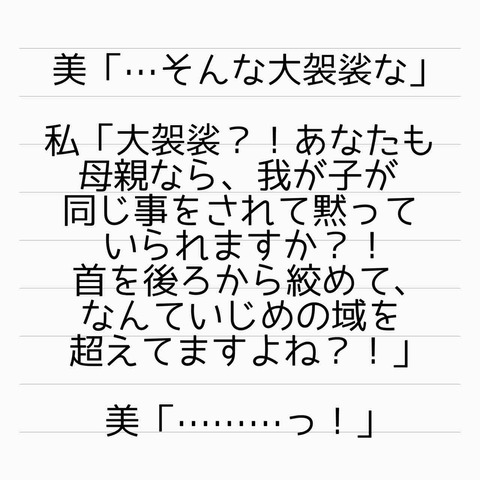 美「…そんな大袈裟な」
私「大袈裟？！あなたも
母親なら、我が子が
同じ事をされて黙って
いられますか？！
首を後ろから絞めて、
なんていじめの域を
超えてますよね？！」
美「………っ！」